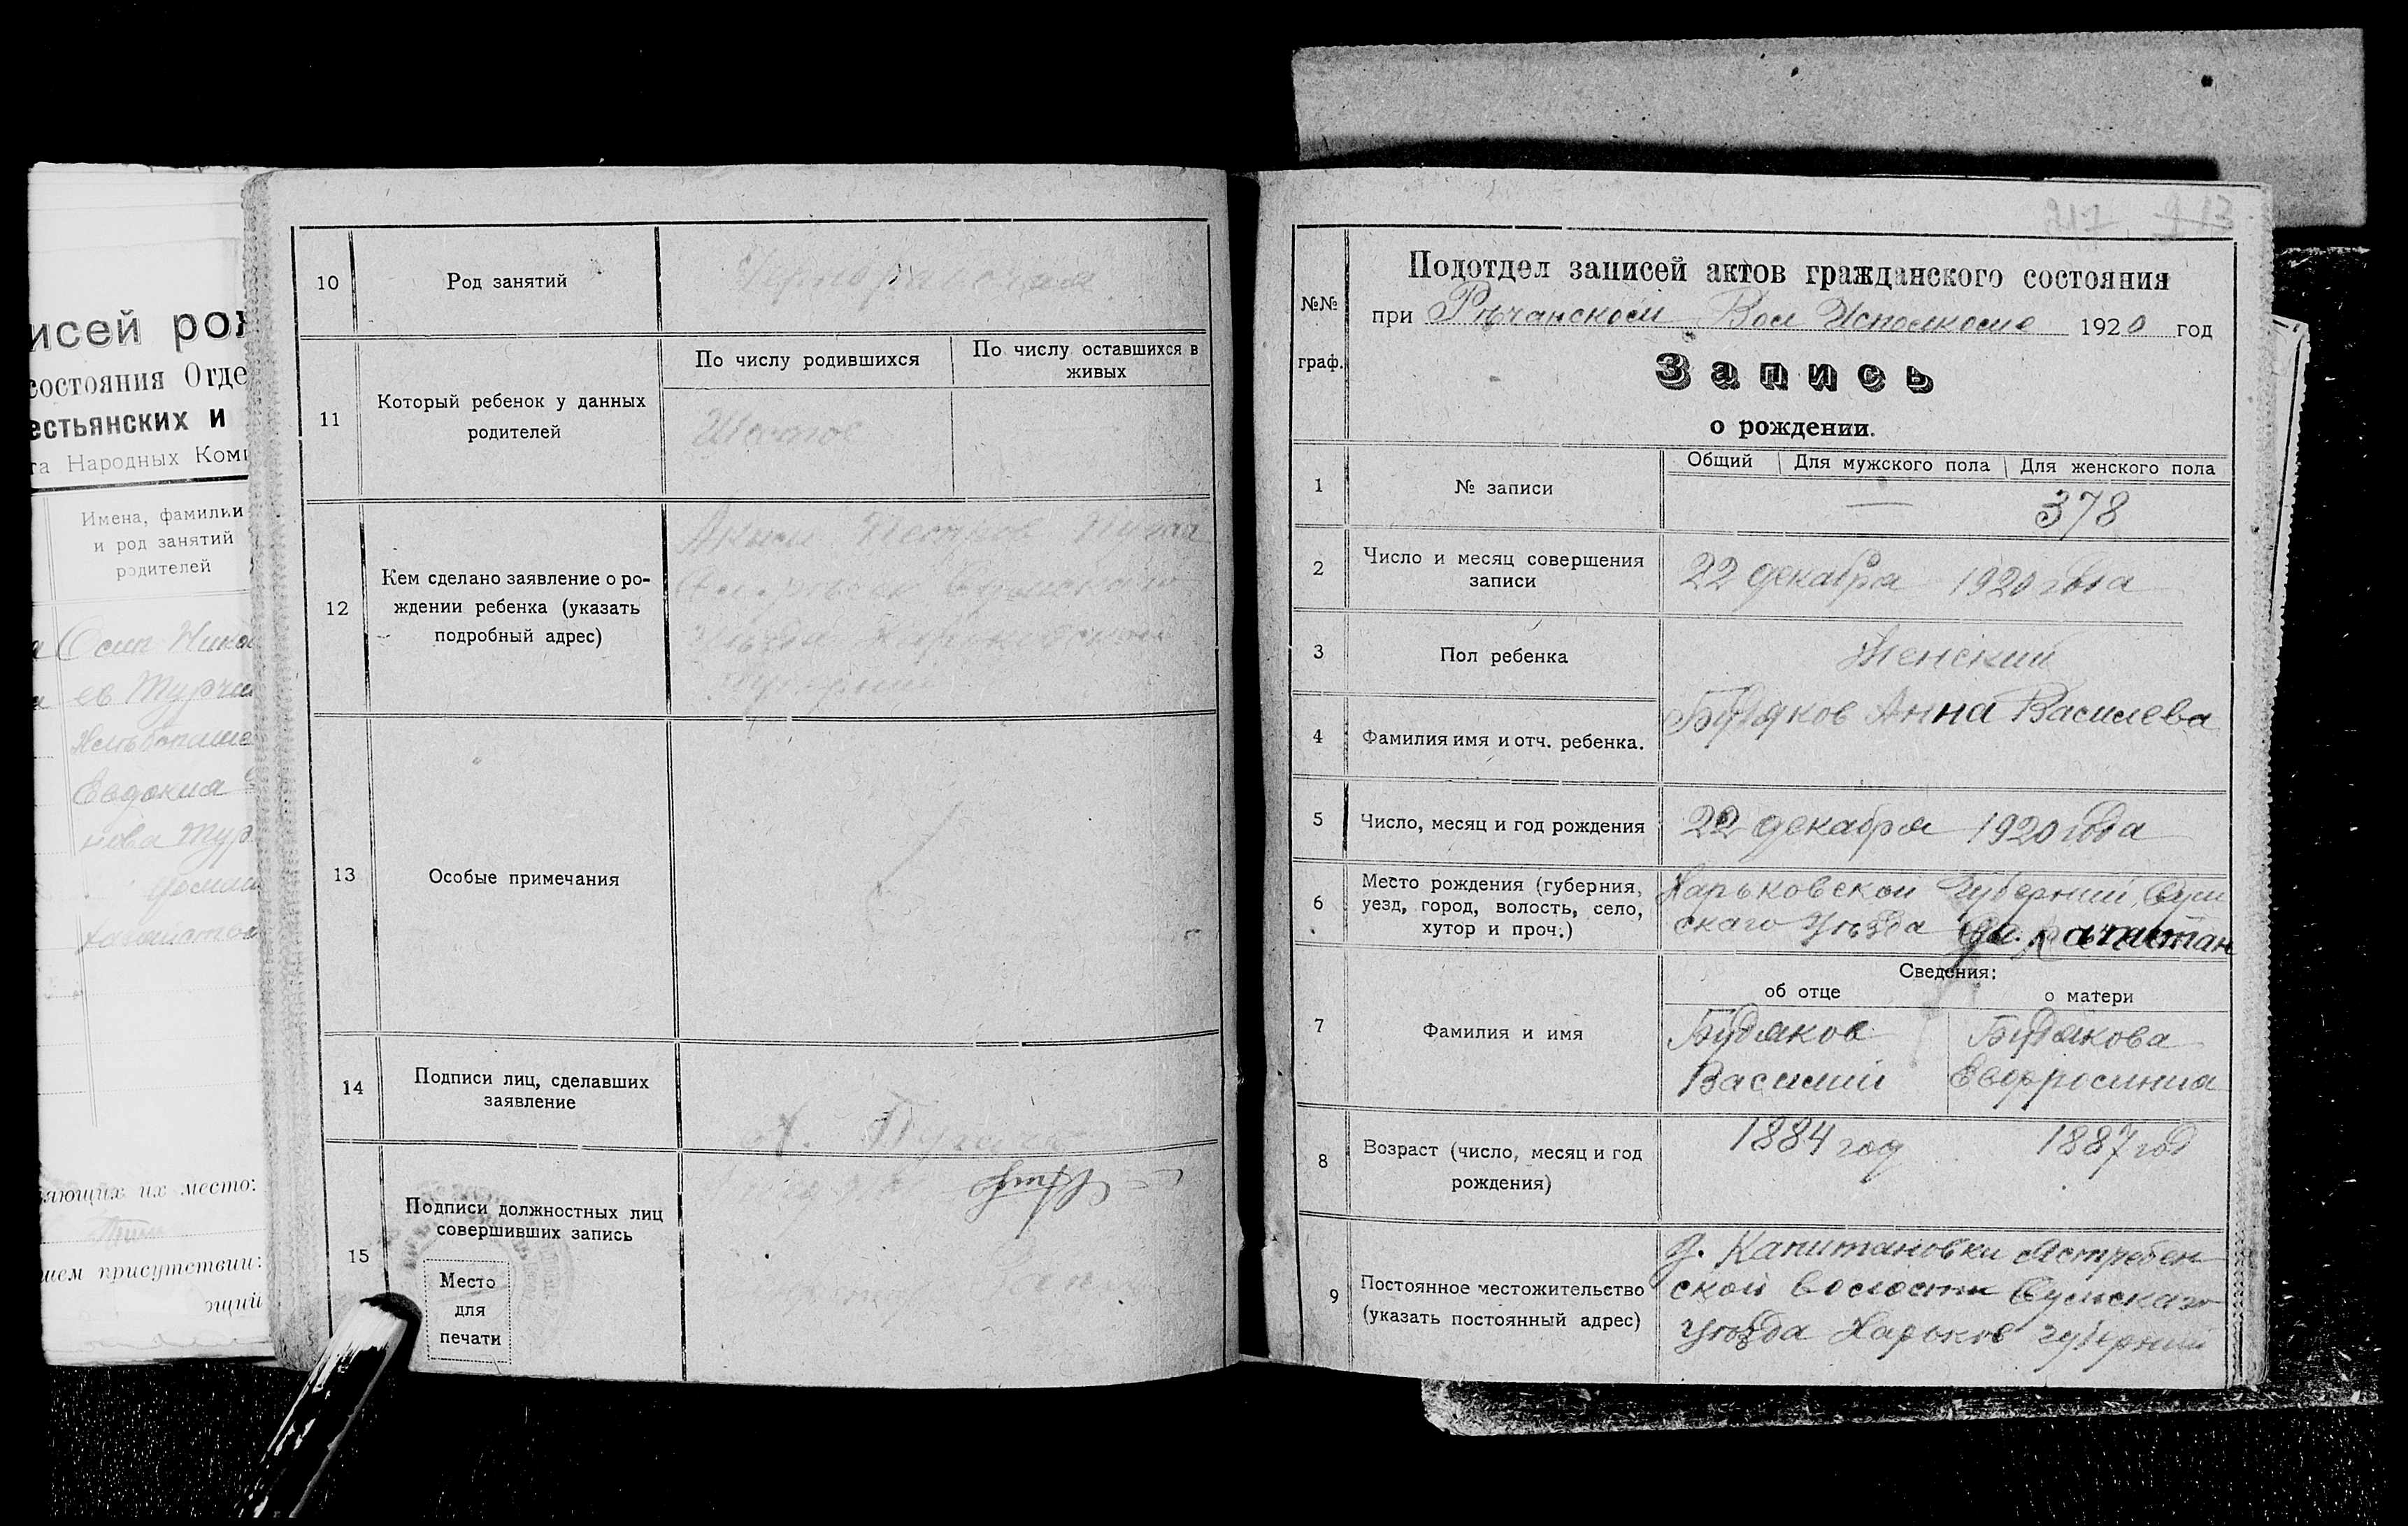 исей рож
состояния Отде
естьянских и
та Народных Коми
Имена, фамилии
и род занятий
родителей
Осип Никол
ев Турчи
Хлебопаше
Евдокия
нова Тур
вляющих их место:
шем присутствии:
ющий
10
Род занятий
11
Который ребенок у данных
родителей
По числу родившихся
По числу оставшихся в
живых
Шестое
12
Кем сделано заявление о ро-
ждении ребенка (указать
подробный адрес)
Петров
Сумскаго
Уѣзда Харьковской
Губернии
13
Особые примечания
14
Подписи лиц, сделавших
заявление
15
Подписи должностных лиц
совершивших запись
Место
для
печати
№№
граф.
Подотдел записей актов гражданского состояния
при Рѣчанском Вол Исполкоме 1920 год
Запись
о рождении.
1
№ записи
Общий
Для мужского пола
Для женского пола
—
378
2
Число и месяц совершения
записи
22 декабря 1920 года
3
Пол ребенка
Женский
4
Фамилия имя и отч. ребенка.
Будяков Анна Василева
5
Число, месяц и год рождения
22 декабря 1920 года
6
Место рождения (губерния,
уезд, город, волость, село,
хутор и проч.)
Харьковской Губернии, Сум
скаго Уѣзда
Сведения:
об отце
о матери
7
Фамилия и имя
Будяков
Василий
Будякова
Евфросиния
8
Возраст (число, месяц и год
рождения)
1884 год
1887 год
9
Постоянное местожительство
(указать постоянный адрес)
д. Капитановки Ястребен
ской волости Сумскаго
Уѣзда Харьков губернии